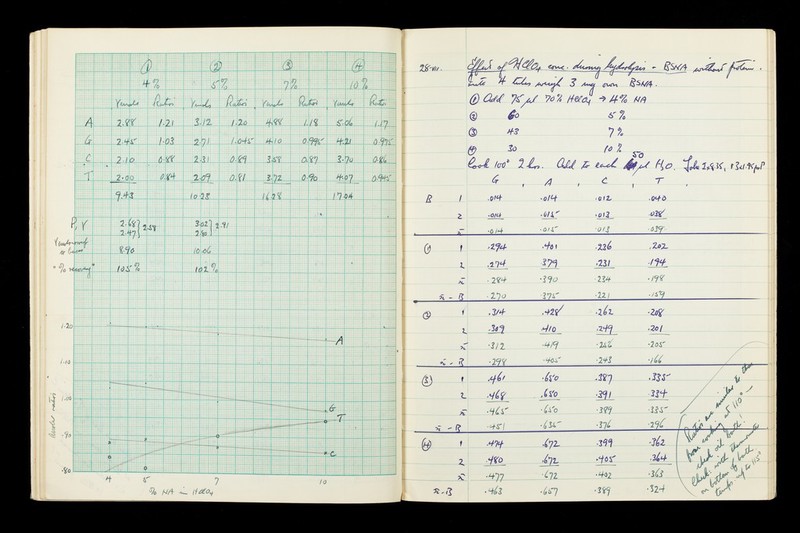 ① ② ③ ④
4% 5% 7% 10%
γmols Ratio γmols Ratios γmols Ratio γmols Ratio
A 2.88 1.21 3.12 1.20 4.88 1.18 5.06 1.17
G 2.45 1.03 2.71 1.045 4.10 0.995 4.21 0.975
C 2.10 0.88 2.31 0.89 3.58 0.87 3.70 0.86
T 2.00 0.84 2.09 0.81 3.72 0.90 4.07 0.945
9.43 10.23 16.28 17.04
P, γ 2.68 2.58 3.02 2.91
2.47 2.80
8.90 10.06
"% recovery" 105% 102%
1.20
A
1.10
1.00
G
T
.90
C
.80
4 5 7 10
% NA in HClO4
28.vii. Effect of HClO4 conc. during hydrolysis - BSNA without protein.
4 tubes weigh 3 mg own BSNA.
① Add 75 μl 70% HClO4 → 4% NA
② 60 5%
③ 43 7%
④ 30 10%
Cook 100° 2 hrs. Add to each 50 μl H2O.
G, A, C, T
B 1 .014 .014 .012 .040
2 .014 .015 .013 .038
x̄ .014 .015 .013 .039
① 1 .294 .401 .236 .202
2 .274 .379 .231 .194
x̄ .284 .390 .234 .198
x̄ - B .270 .375 .221 .159
② 1 .314 .428 .262 .208
2 .309 .410 .249 .201
x̄ .312 .419 .256 .205
x̄ - B .298 .405 .243 .166
③ 1 .461 .650 .387 .335
2 .468 .650 .391 .334
x̄ .465 .650 .389 .335
x̄ - B .451 .635 .376 .296
④ 1 .474 .672 .399 .362
2 .480 .672 .405 .364
x̄ .477 .672 .402 .363
x̄ - B .463 .657 .389 .324
Ratios are similar to those
from cooking at 110° —
check oil bath!
Check with thermometer
on bottom of bath
temp. up to 115°